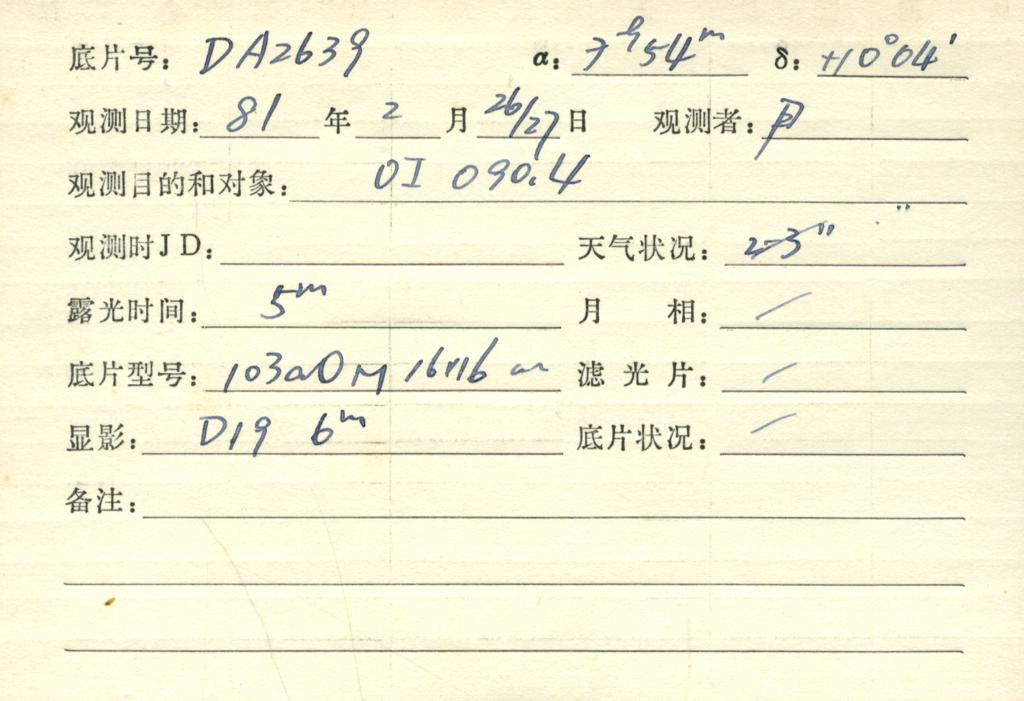 底片号: DA2639 α: 7h 54m δ: +10°04'
观测日期: 81 年 2 月 26/27 日 观测者:
观测目的和对象: OI 090.4
观测时JD: 天气状况: 2-3"
露光时间: 5m 月相: /
底片型号: 103aO 16×16 cm 滤光片: /
显影: D19 6m 底片状况: /
备注: